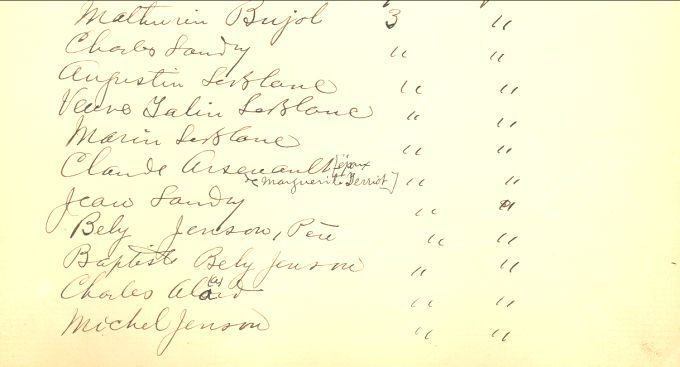 Mathurin Bujol 3 "
Charles Landry " "
Augustin LeBlanc " "
Veuve Galin LeBlanc " "
Marin LeBlanc " "
Claude Arsenault [époux " "
de Marguerite Terriot]
Jean Landry " "
Bely Jenson, Père " "
Baptiste Bely Jenson " "
Charles (a) " "
Michel Jenson " "